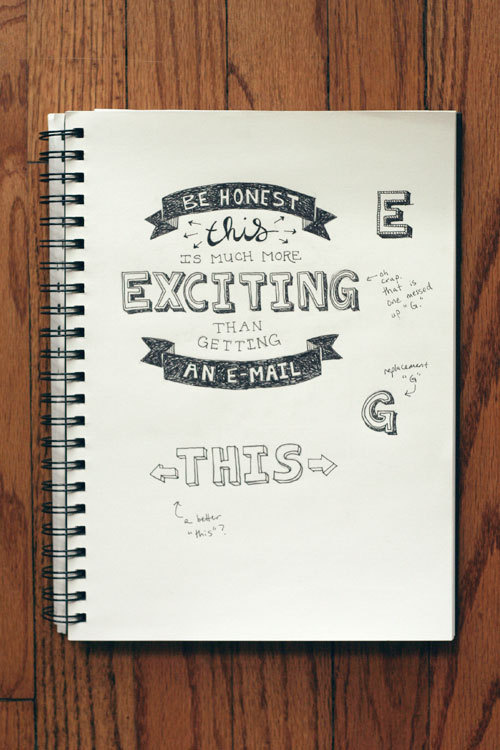 BE HONEST
this
IS MUCH MORE
EXCITING
THAN
GETTING
AN E-MAIL
E
oh
crap.
that is
one messed
up "G."
replacement
"G"
G
THIS
a better
"this"?